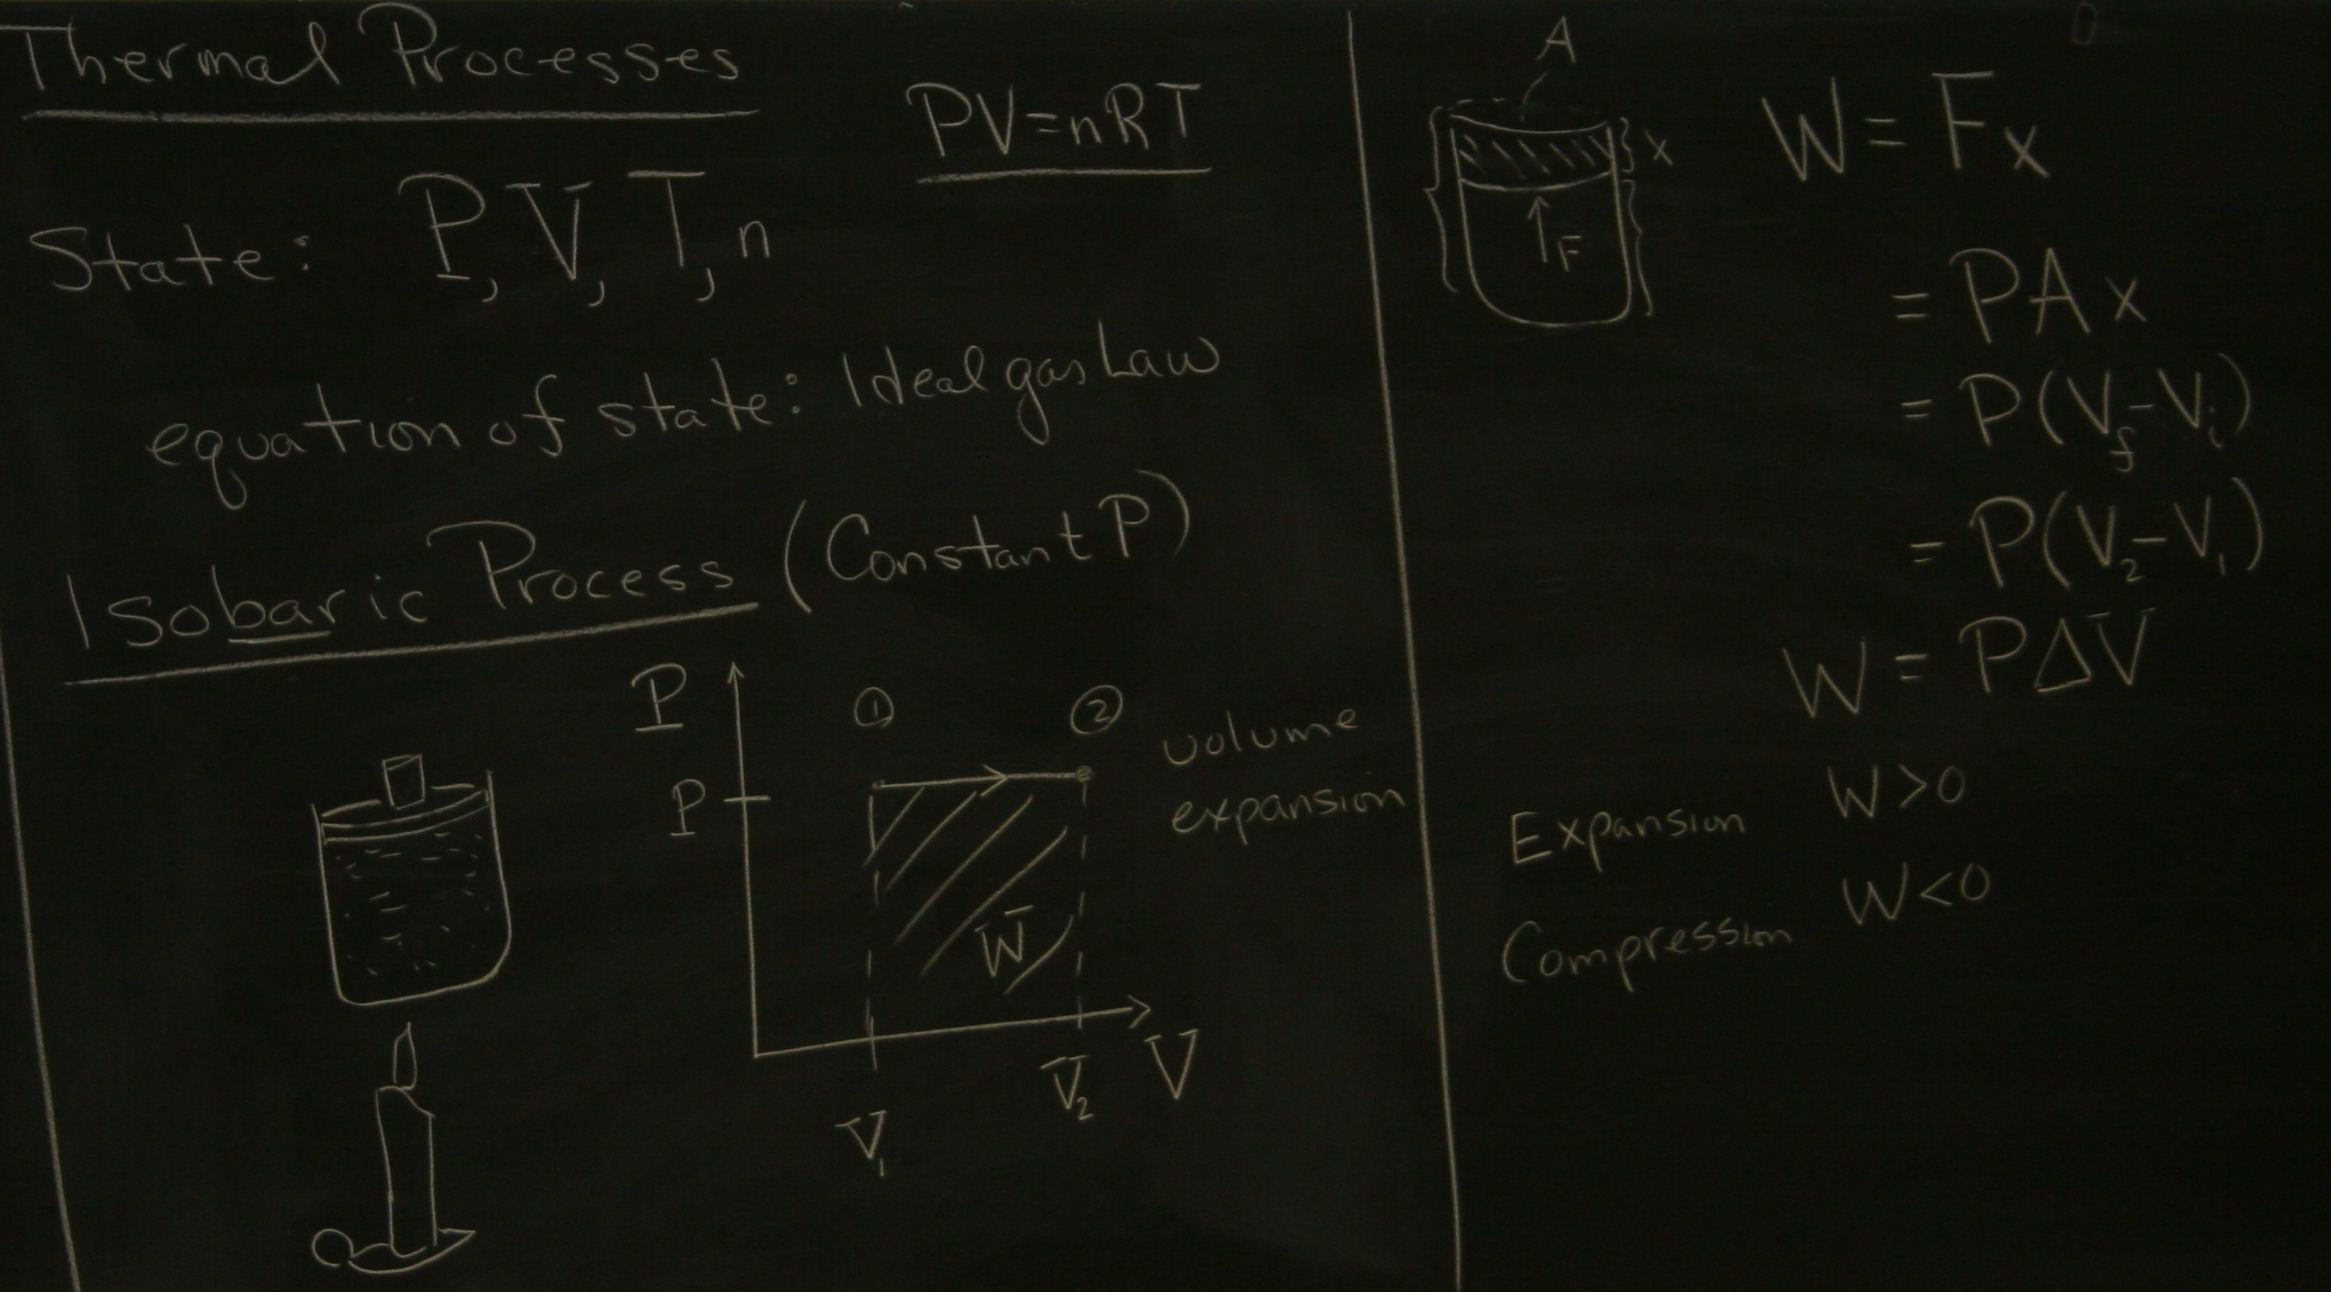 Thermal Processes
PV=nRT
State: P, V, T, n
equation of state: Ideal gas Law
Isobaric Process (Constant P)
P
① ②
volume
P
expansion
W
V₂ V
V₁
A
x
F
W = Fx
= PAx
= P(V_f-V_i)
= P(V₂-V₁)
W = PΔV
Expansion W>0
Compression W<0